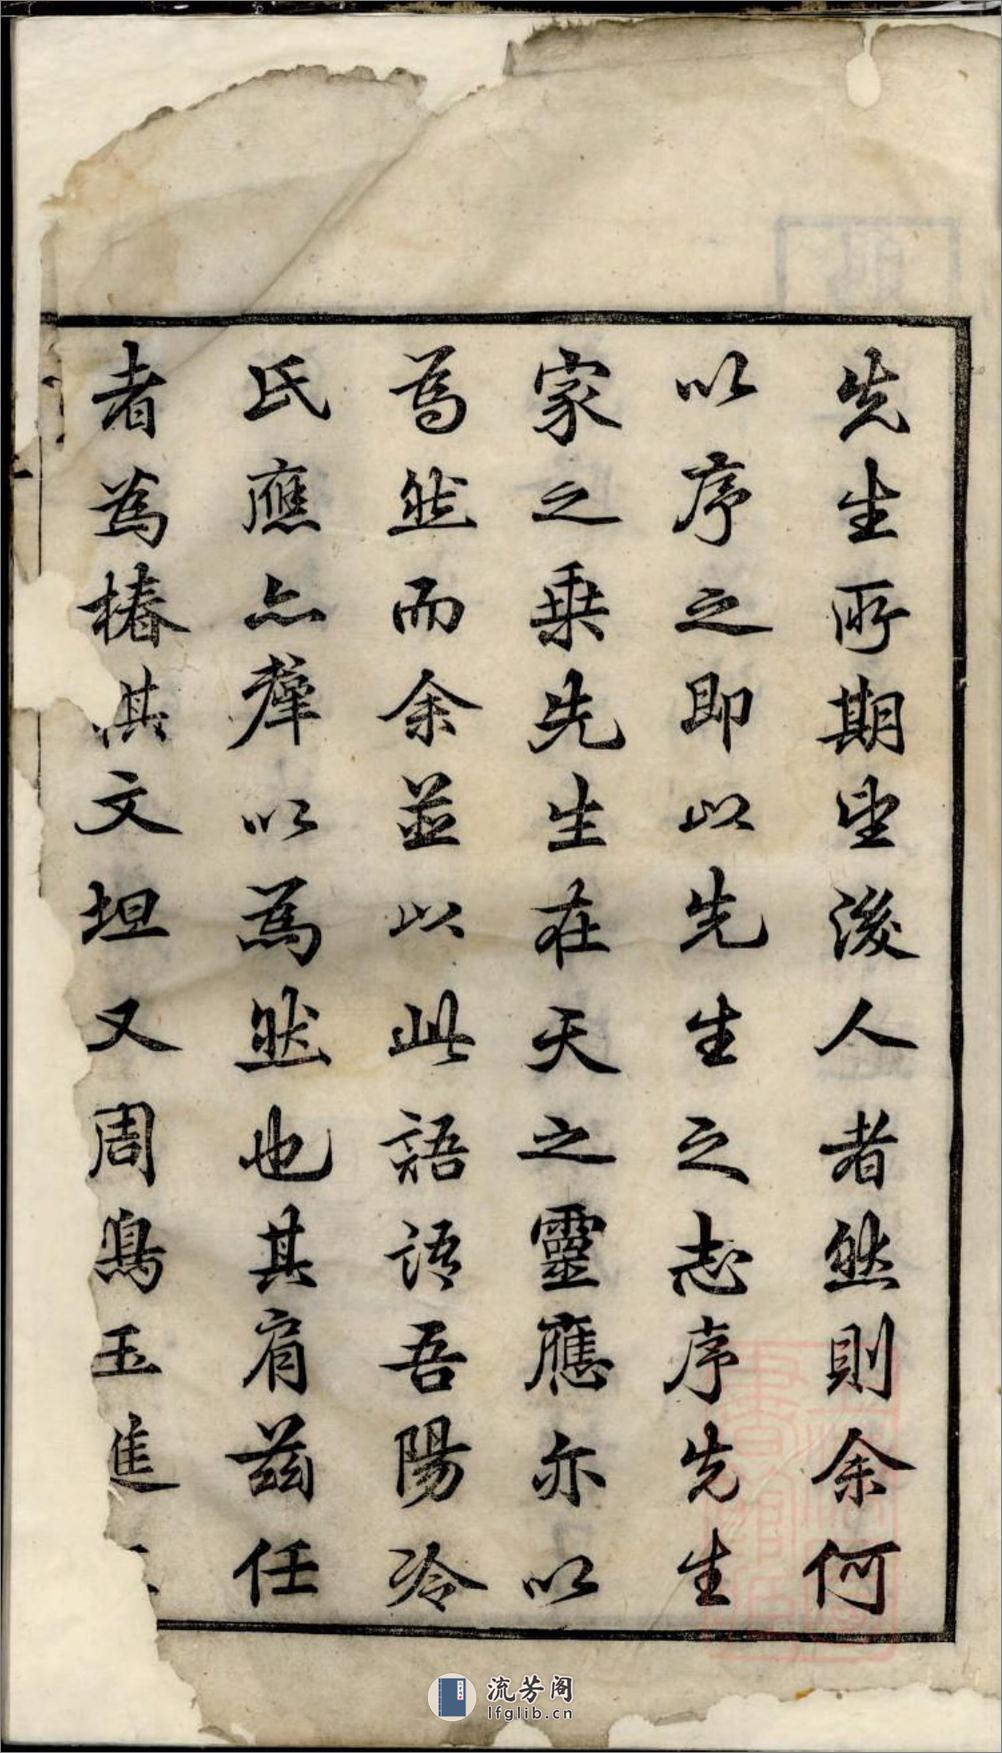 先生所期望後人者然則余何
以序之即以先生之志序先生
家之乗先生在天之靈應亦以
為然而余並以此語語吾陽冷
氏應亦羣以為然也其肩茲任
者為椿其文坦又周鳥玉進
流芳阁
lfglib.cn